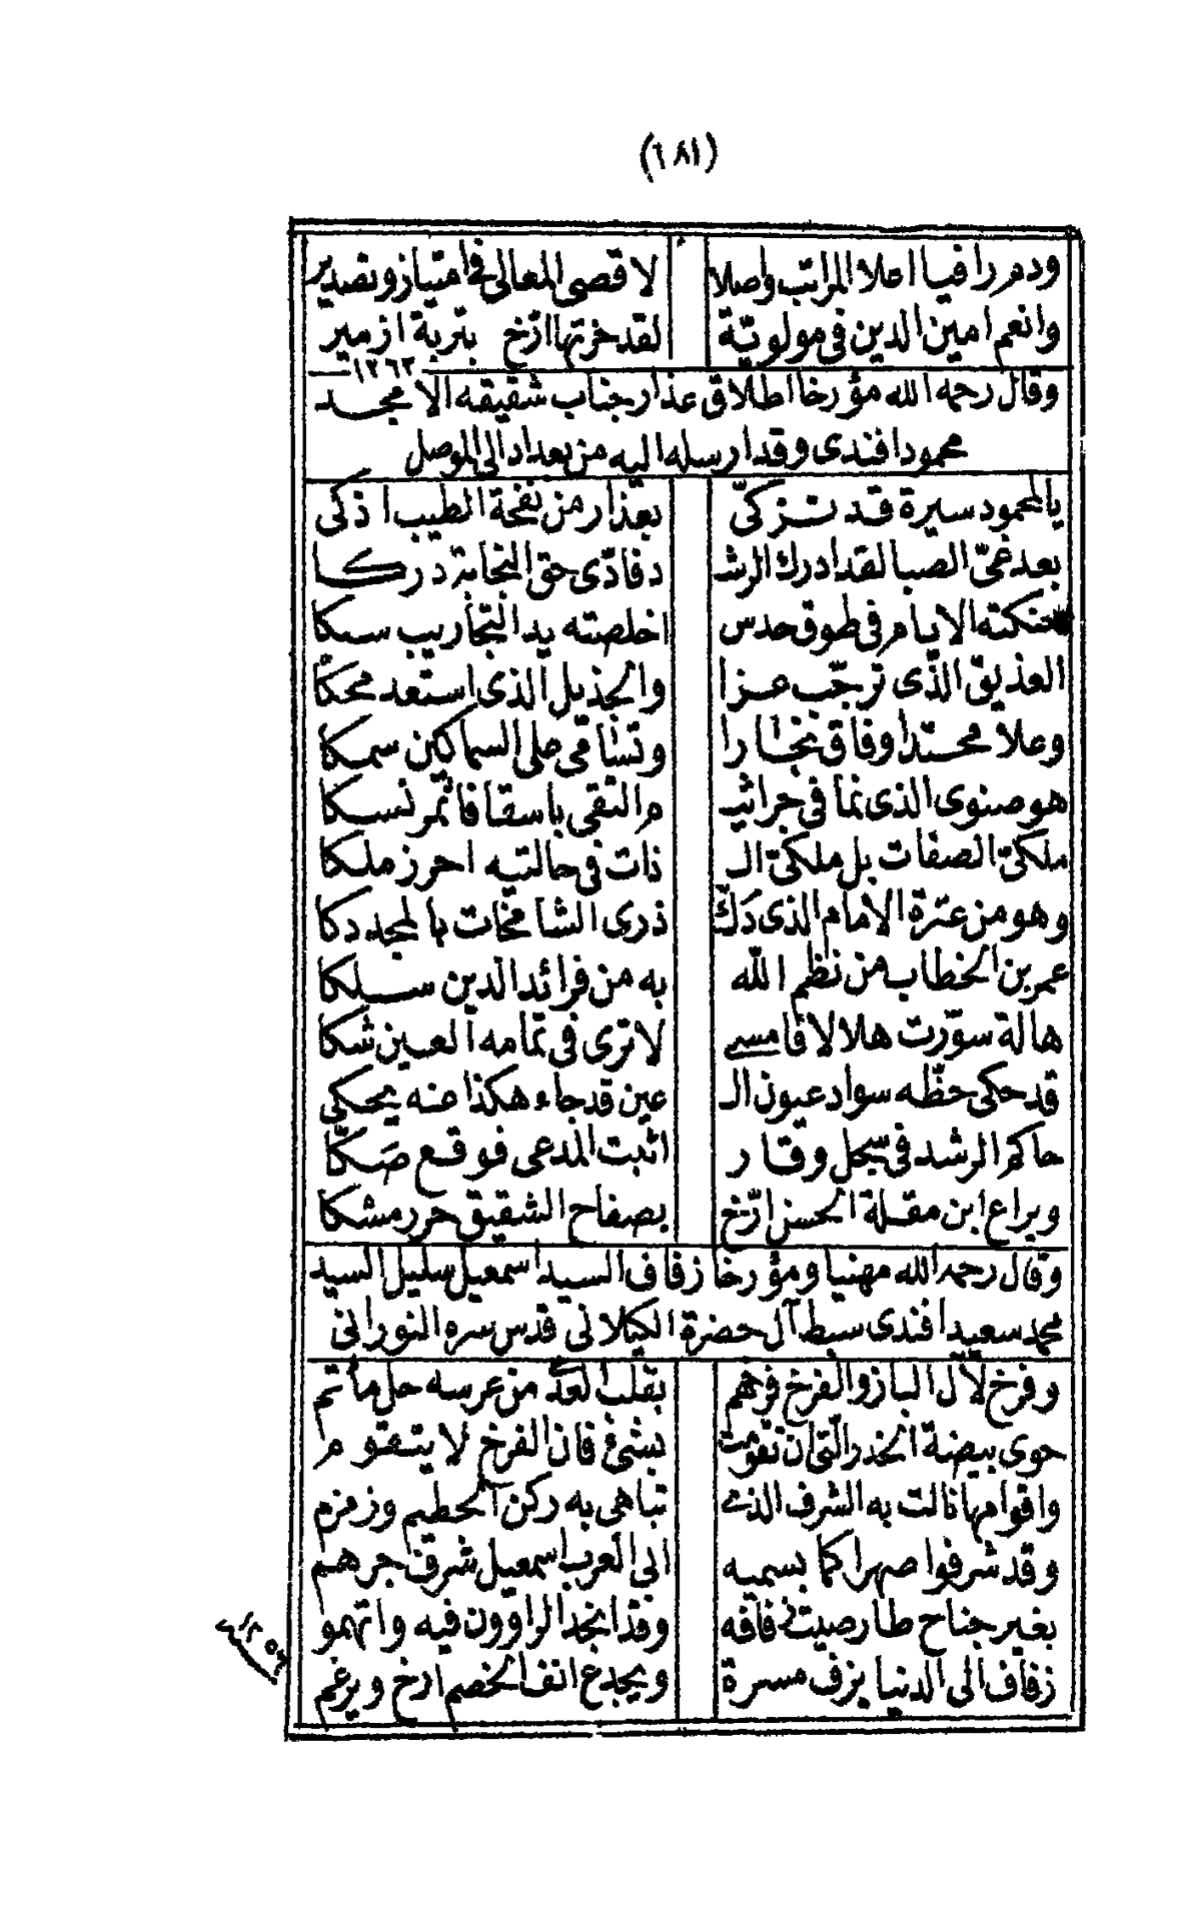 (١٨٦)
ودم راقيا اعلا المراتب واصلا لاقصى المعالى فى امتياز وتصدير
وانعم امين الدين فى مولويّة لقد خرتها ارّخ بتربة ازمير
١٢٦٣
وقال رحمه الله مؤرخا اطلاق عذار جناب شقيقه الامجد
محمود افندى وقد ارسله اليه من بغداد الى الموصل
يالمحمود سيرة قد تزكىّ بعذار من نفحة الطيب اذكى
بعد غىّ الصبا لقد ادرك الرشـ د فادّى حق النجابة دركا
حنكته الايام فى طوق حدس اخلصته يد التجاريب سبكا
العذيق الذى ترجّب عزا والجذيل الذى استعد محكّا
وعلا محتدا وفاق نجارا وتسامى على السماكين سمكا
هو صنوى الذى نما فى جراثيـ م التقى باسقا فاثمر نسكا
ملكىّ الصفات بل ملكىّ الـ ذات فى حالتيه احرز ملكا
وهو من عترة الامام الذى دكّ ذرى الشامخات بالمجد دكا
عمر بن الخطاب من نظم الله به من فرائد الدين سلكا
هالة سوّرت هلالا فامسى لا ترى فى تمامه العين شكا
قد حكى حظّه سواد عيون الـ عين قد جاء هكذا عنه يحكى
حاكم الرشد فى سجل وقار اثبت المدعى فوقع صكّا
ويراع ابن مقلة الحسن ارّخ بصفاح الشقيق حرر مشكا
وقال رحمه الله مهنيا ومؤرخا زفاف السيد اسمعيل سليل السيد
محمد سعيد افندى سبط آل حضرة الكيلانى قدس سره النورانى
وفرخ لآل الباز والفرخ فرحهم بقلب العدى من عرسه حل مأتم
حوى بيضة الخدر التى ان تقومت بشئ فان الفرخ لا يتقوم
واقوامها نالت به الشرف الذى تباهى به ركن الحطيم وزمزم
وقد شرفوا صهرا كما بسميه الى العرب اسمعيل شرف جرهم
بغير جناح طار صيت زفافه وقد انجد الراوون فيه واتهموا
زفاف الى الدنيا يزف مسرة ويجدع انف الخصم ارخ ويرغم